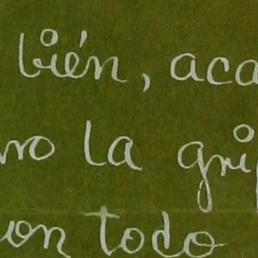 bién, aca
no la grip
on todo